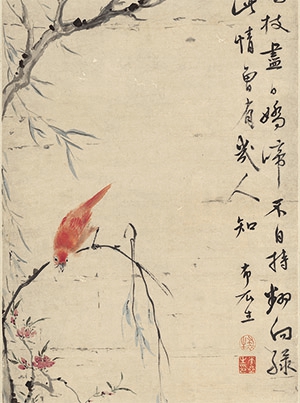 枝盡嬌啼不自持翻向綠
此情曾有幾人知
布衣生